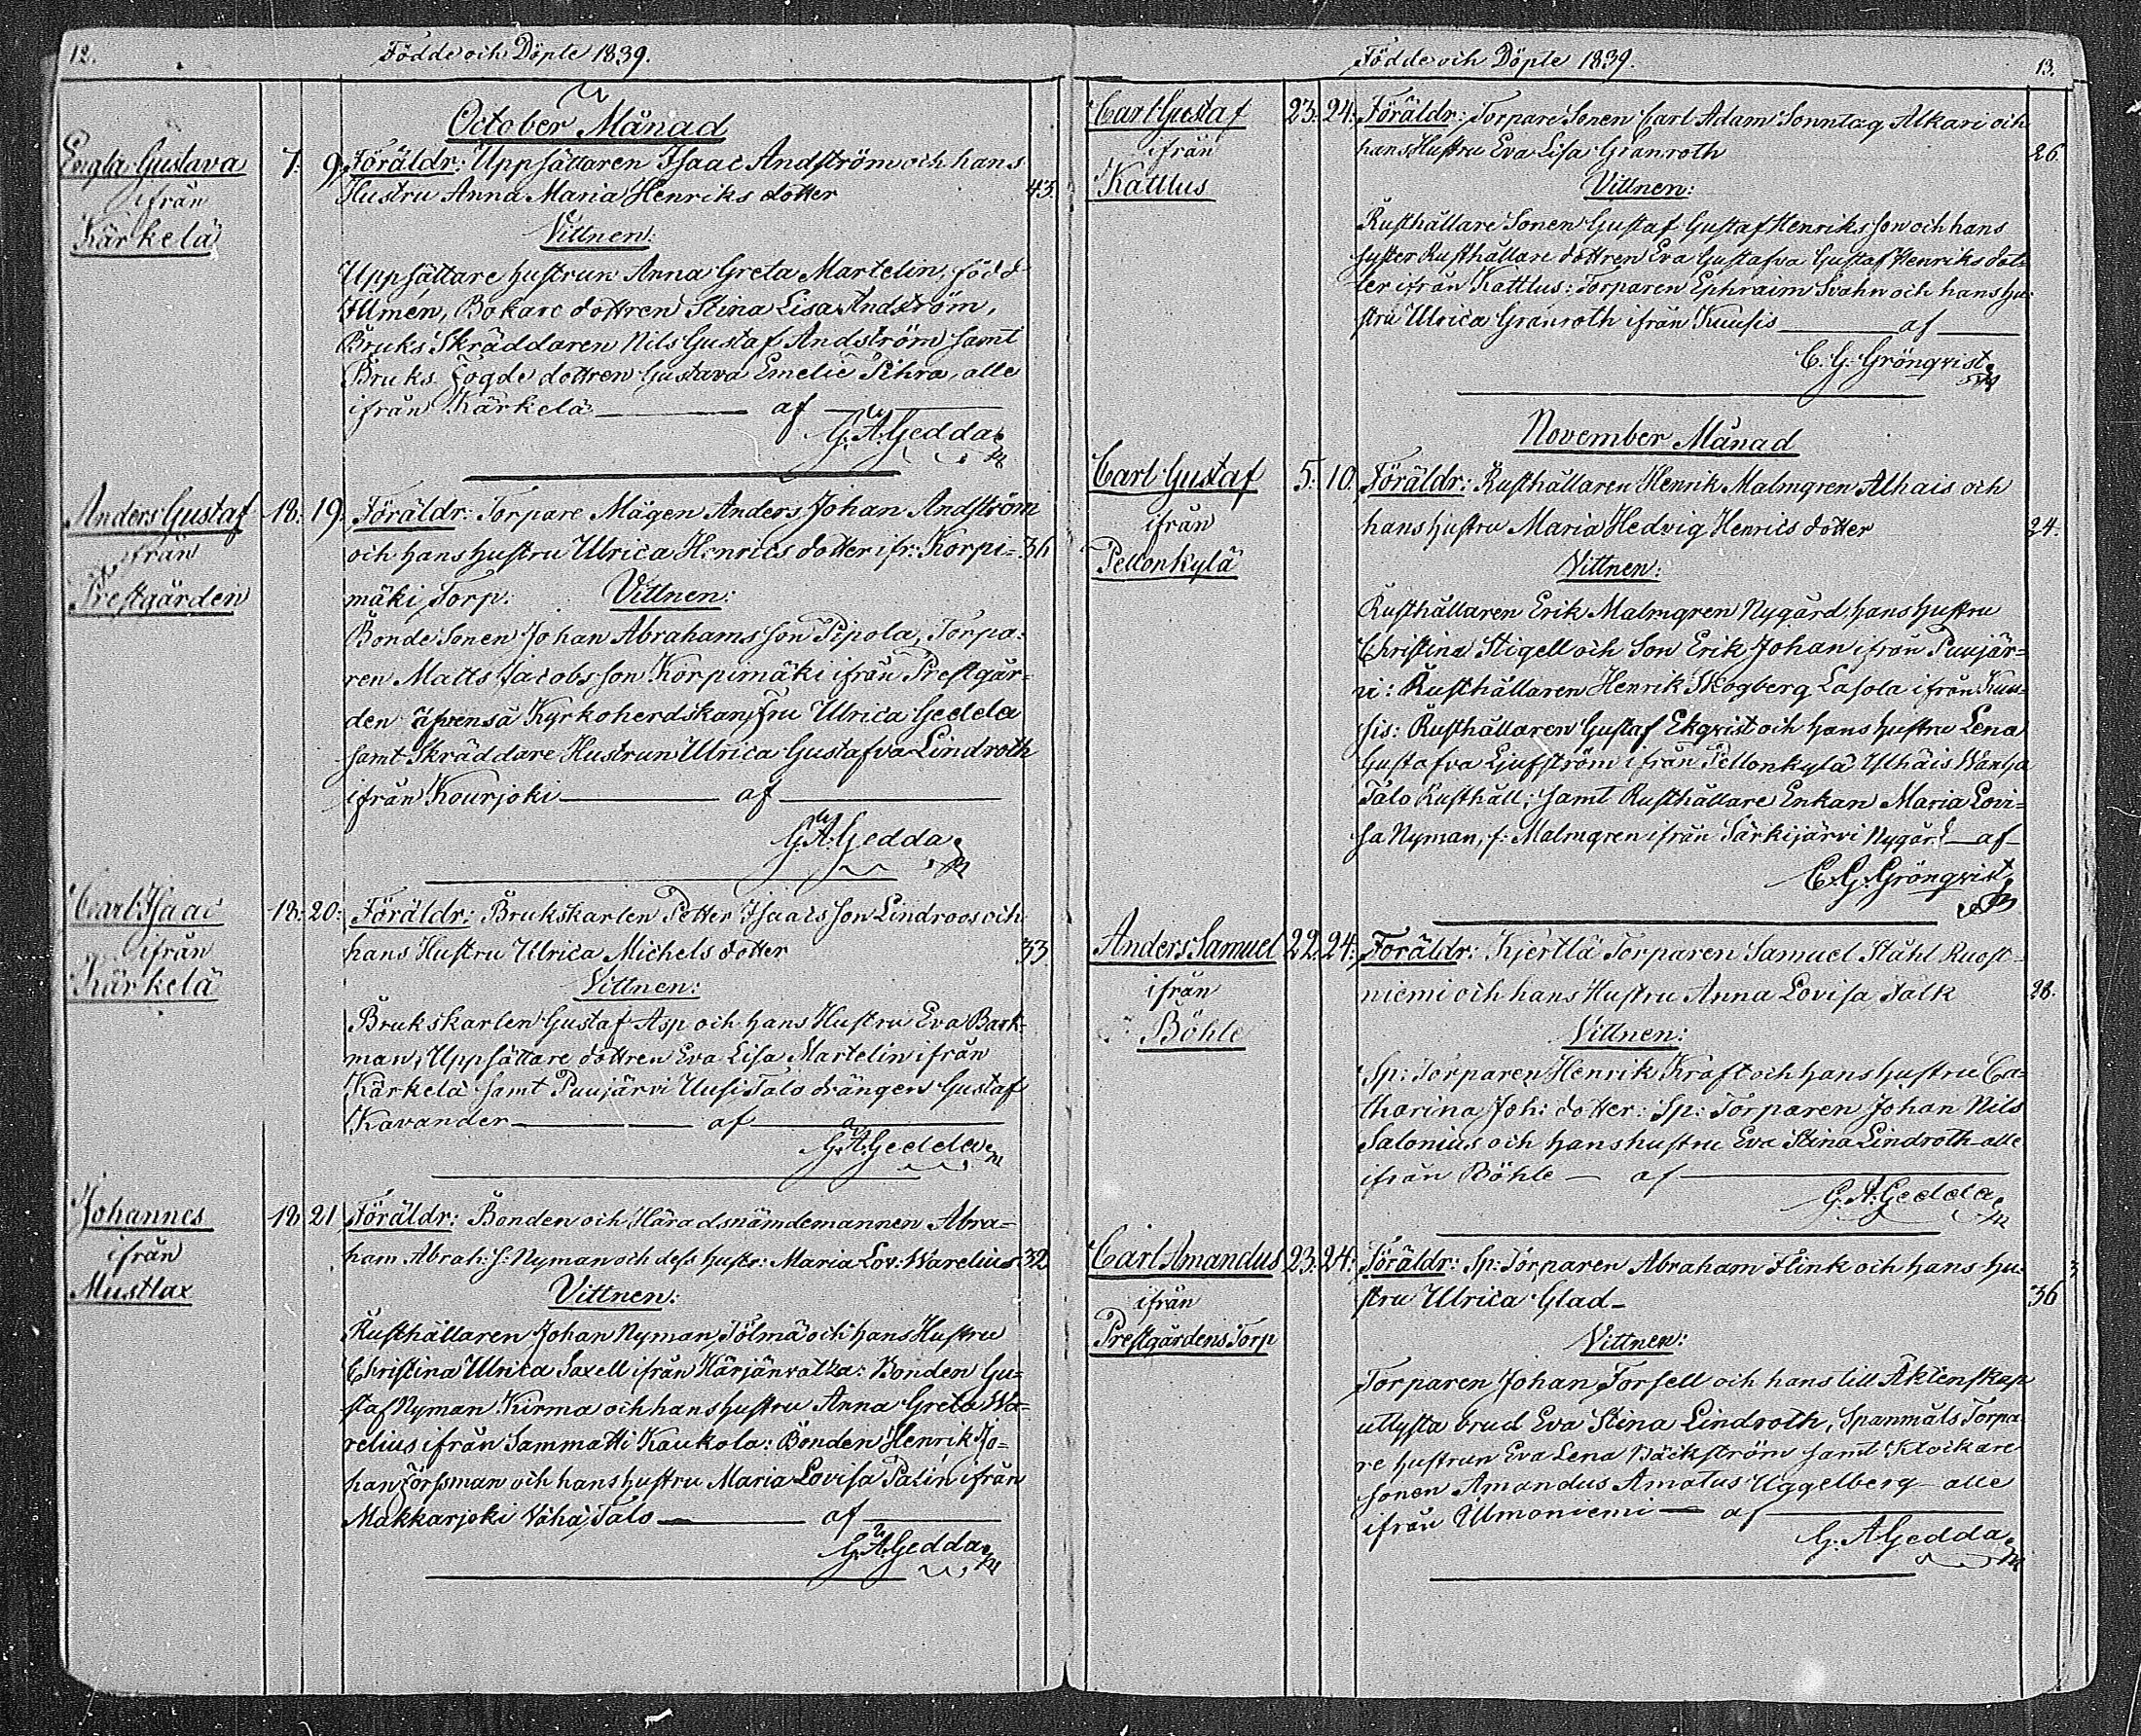 12. Födde och Döpte 1839.
October Månad
Engla Gustava 7. 9. Föräldr: Uppsättaren Isaac Andström och hans
ifrån Hustru Anna Maria Henriks dotter 43.
Kärkelä Vittnen:
Uppsättare hustrun Anna Greta Martelin, född
Ilmén, Bokare dottren Stina Lisa Andström,
Bruks Skräddaren Nils Gustaf Andström samt
Bruks Fogde dottren Gustava Emelie Pihra, alle
ifrån Kärkelä af
G. A. Gedda
Anders Gustaf 18. 19. Föräldr: Torpare Mågen Anders Johan Andström
ifrån och hans hustru Ulrica Henrics dotter ifr: Korpi= 36
Prestgården mäki Torp. Vittnen:
Bonde Sonen Johan Abrahams son Pipola, Torpa=
ren Matts Jacobs son Korpimäki ifrån Prestgår=
den äfvenså Kyrkoherdskan Fru Ulrica Gedda
samt Skräddare Hustrun Ulrica Gustafva Lindroth
ifrån Kourjoki af
G. A. Gedda
Carl Isaac 18. 20. Föräldr: Brukskarlen Petter Isaacs son Lindroos och
ifrån hans Hustru Ulrica Michels dotter 33
Kärkelä Vittnen:
Brukskarlen Gustaf Asp och hans Hustru Eva Bark=
man, Uppsättare dottren Eva Lisa Martelin ifrån
Kärkelä samt Puujärvi Uusi Talo drängen Gustaf
Kavander af
G. A. Gedda
Johannes 18. 21 Föräldr: Bonden och Häradsnämdemannen Abra=
ifrån ham Abrah: s. Nyman och dess hustr: Maria Lov: Warelius 32
Mustlax Vittnen:
Rusthållaren Johan Nyman Tölmä och hans Hustru
Christina Ulrica Saxell ifrån Härjänvatza: Bonden Gu=
staf Nyman Kirma och hans hustru Anna Greta Wa=
relius ifrån Sammatti Kaukola: Bonden Henrik Jo=
han Forssman och hans hustru Maria Lovisa Palin ifrån
Makkarjoki Vähä Talo af
G. A. Gedda
Födde och Döpte 1839. 13.
Carl Gustaf 23. 24. Föräldr: Torpare Sonen Carl Adam Sonntag Alkari och
ifrån hans Hustru Eva Lisa Granroth 26.
Kattlus Vittnen:
Rusthållare Sonen Gustaf Gustaf Henriks son och hans
syster Rusthållare dottren Eva Gustafva Gustaf Henriks dot=
ter ifrån Kattlus: Torparen Ephraim Svahn och hans hu=
stru Ulrica Granroth ifrån Kuusis af
C. G. Grönqvist
November Månad
Carl Gustaf 5. 10. Föräldr: Rusthållaren Henrik Malmgren Alhais och
ifrån hans hustru Maria Hedvig Henrics dotter 24.
Pellonkylä Vittnen:
Rusthållaren Erik Malmgren Nygård, hans hustru
Christina Stigell och Son Erik Johan ifrån Puujär=
vi: Rusthållaren Henrik Skogberg Lasola ifrån Kuu=
sis: Rusthållaren Gustaf Ekqvist och hans hustru Lena
Gustafva Ljufström ifrån Pellonkylä Ylhäis Wanha
Talo Rusthåll; samt Rusthållare Enkan Maria Lovi=
sa Nyman, f: Malmgren ifrån Särkijärvi Nygård af
C. G. Grönqvist
Anders Samuel 22. 24. Föräldr: Kjertlä Torparen Samuel Ståhl Ruost=
ifrån niemi och hans Hustru Anna Lovisa Falk 28.
Böhle Vittnen:
Sp: Torparen Henrik Kraft och hans hustru Ca=
tharina Joh: dotter: Sp: Torparen Johan Nils
Salonius och hans hustru Eva Stina Lindroth alle
ifrån Böhle af
G. A. Gedda
Carl Amandus 23. 24. Föräldr: Sp: Torparen Abraham Flink och hans hu=
ifrån stru Ulrica Glad 36
Prestgårdens Torp Vittnen:
Torparen Johan Forsell och hans till Äktenskap
utlysta brud Eva Stina Lindroth, Spanmåls Torpa=
re hustrun Eva Lena Bäckström samt Klockare
sonen Amandus Amatus Uggelberg alle
ifrån Ulmoniemi af
G. A. Gedda